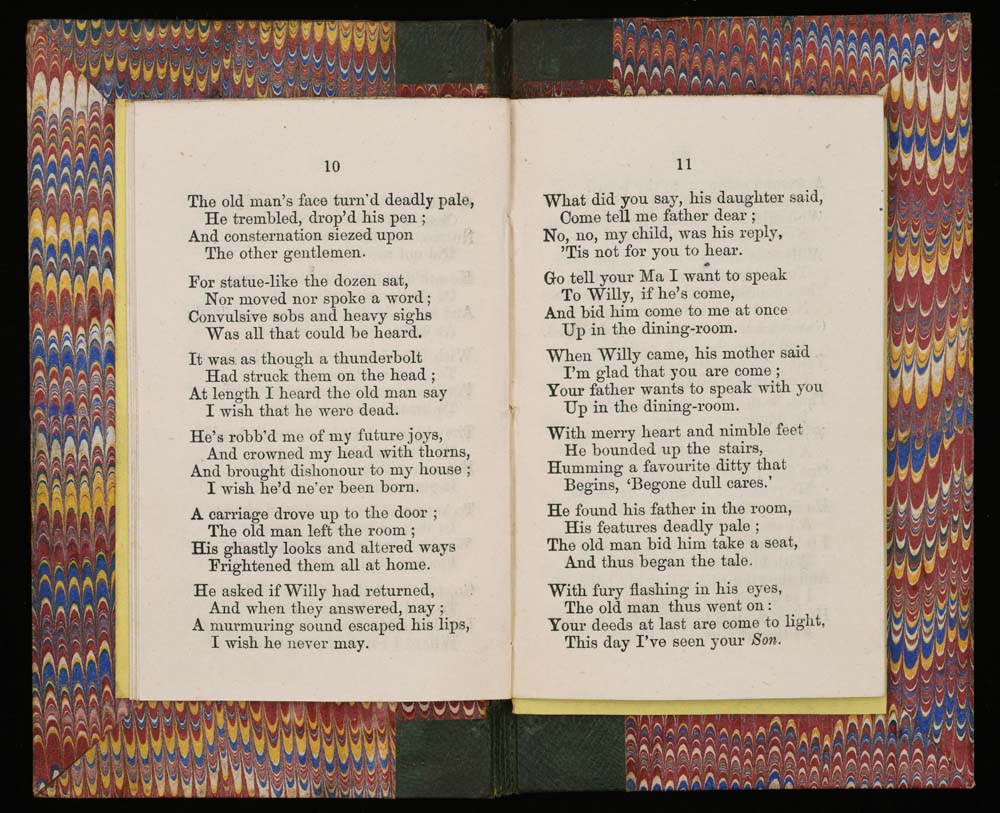 10
The old man's face turn'd deadly pale,
He trembled, drop'd his pen ;
And consternation siezed upon
The other gentlemen.
For statue-like the dozen sat,
Nor moved nor spoke a word ;
Convulsive sobs and heavy sighs
Was all that could be heard.
It was as though a thunderbolt
Had struck them on the head ;
At length I heard the old man say
I wish that he were dead.
He's robb'd me of my future joys,
And crowned my head with thorns,
And brought dishonour to my house ;
I wish he'd ne'er been born.
A carriage drove up to the door ;
The old man left the room ;
His ghastly looks and altered ways
Frightened them all at home.
He asked if Willy had returned,
And when they answered, nay ;
A murmuring sound escaped his lips,
I wish he never may.
11
What did you say, his daughter said,
Come tell me father dear ;
No, no, my child, was his reply,
'Tis not for you to hear.
Go tell your Ma I want to speak
To Willy, if he's come,
And bid him come to me at once
Up in the dining-room.
When Willy came, his mother said
I'm glad that you are come ;
Your father wants to speak with you
Up in the dining-room.
With merry heart and nimble feet
He bounded up the stairs,
Humming a favourite ditty that
Begins, 'Begone dull cares.'
He found his father in the room,
His features deadly pale ;
The old man bid him take a seat,
And thus began the tale.
With fury flashing in his eyes,
The old man thus went on :
Your deeds at last are come to light,
This day I've seen your Son.